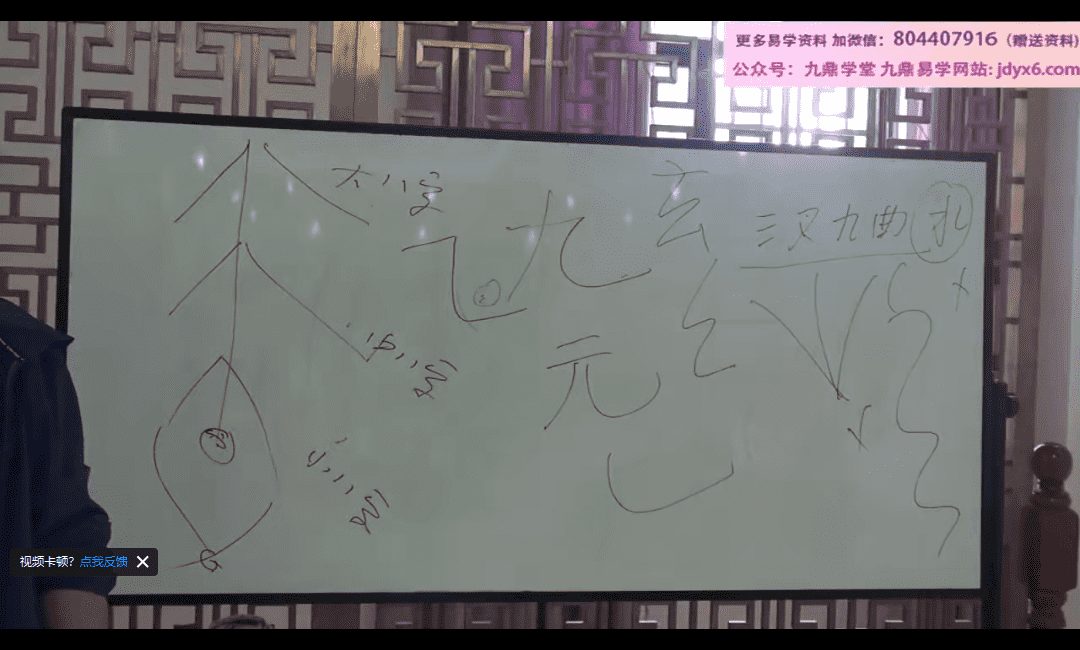 更多易学资料 加微信：804407916（赠送资料）
公众号：九鼎学堂 九鼎易学网站: jdyx6.com
大八字
九
玄
三叉九曲水
中八字
元
小八字
视频卡顿？点我反馈